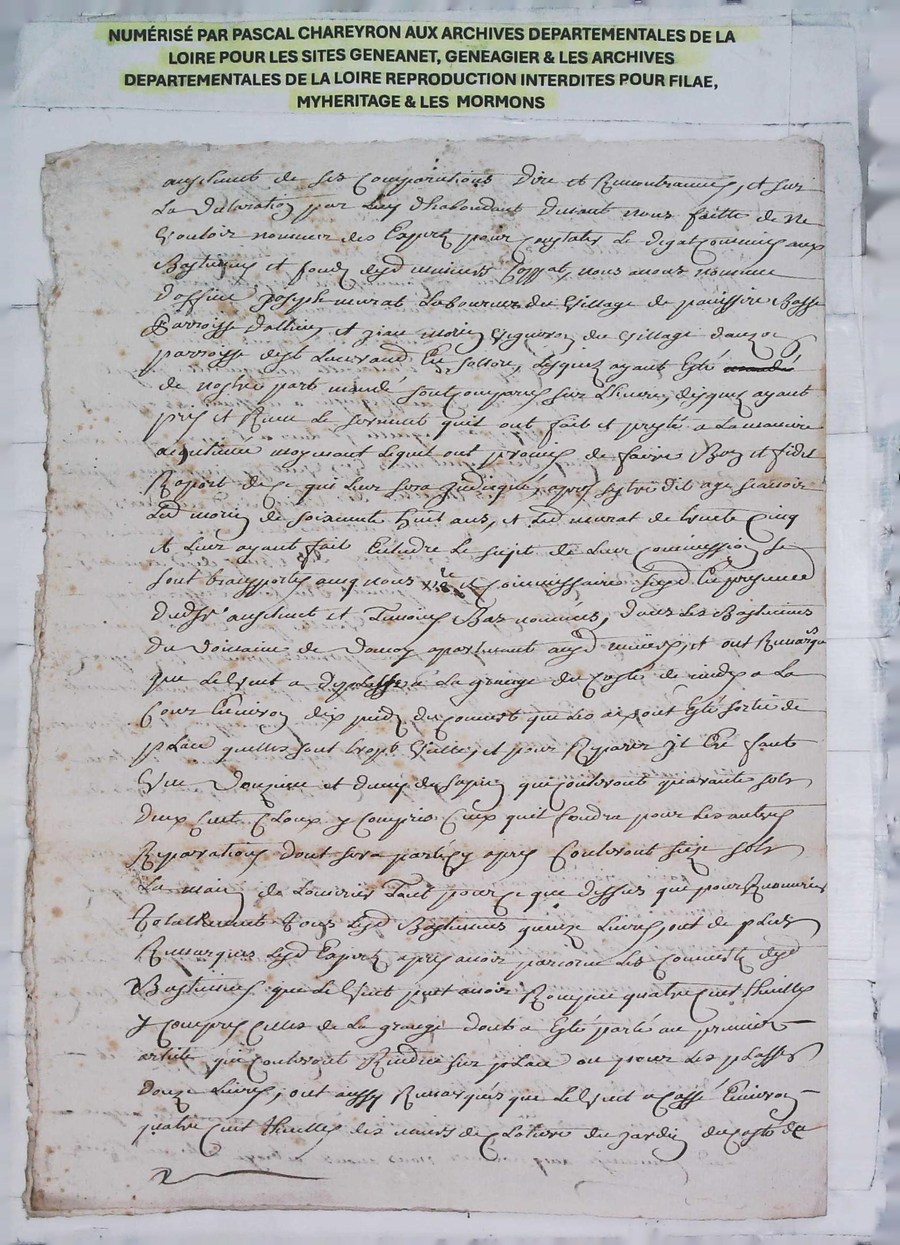 NUMÉRISÉ PAR PASCAL CHAREYRON AUX ARCHIVES DEPARTEMENTALES DE LA
LOIRE POUR LES SITES GENEANET, GENEAGIER & LES ARCHIVES
DEPARTEMENTALES DE LA LOIRE REPRODUCTION INTERDITES POUR FILAE,
MYHERITAGE & LES MORMONS
de ses Comparutions dire et Remontrances, et sur
La declaration par Luy d'habondant devant nous faitte de ne
Vouloir nommer des Experts pour constater Le degat commis aux
Bastiments et fonds desd mineurs nous avons nommé
d'office Joseph murat Laboureur du Village de Basse
Parroisse et jean morin Vigneron du Village
parroisse de st Lesquels ayant Esté mandé
de nostre part mandé sont comparus sur L'heure, desquels ayant
pris et Receu Le serment quil ont fait et presté a La maniere
acoutumée moyenant Lequel ont promis de faire Bon et fidel
Raport de ce qui Leur sera Indiqué, apres sestre dit agé scavoir
Led morin de soixante huit ans, et Led murat de trente Cinq
et Leur ayant fait Entendre Le sujet de Leur Commission se
sont transportes avec nous et Commissaire susd En presence
dud sr et Temoins Bas nommés, dans Les Bastiments
du Domaine de apartenant aud mineurs, et ont Remarqué
que Le Vent a La grange du Costé de a La
Cour Environ dix pieds du Couvert que Les ais sont Esté sortis de
place quelles sont trop Vieille, et pour Reparer Il En faut
Une Douzaine et demy de sapin qui Couteront quarante sols
deux Cent Cloux y Compris Ceux quil faudra pour Les autres
Reparations dont sera parlé Cy apres Couteront seize sols
La main de Louvrier Tant pour ce que dessus que pour Remanier
Totallement tous Lesd Bastiments quinze Livres, ont de plus
Remarqués Lesd Experts apres avoir parcouru Les Couverts desd
Bastiments que Le Vent peut avoir Rompue quatre cent thuilles
y Compris Celles de La grange dont a Esté parlé au premier
article qui Couteront Rendue sur place ou pour Les placer
douze Livres, ont aussy Remarqués que Le Vent a Cassé Environ
quatre Cent thuilles des murs de Cloture du Jardin du Costé de